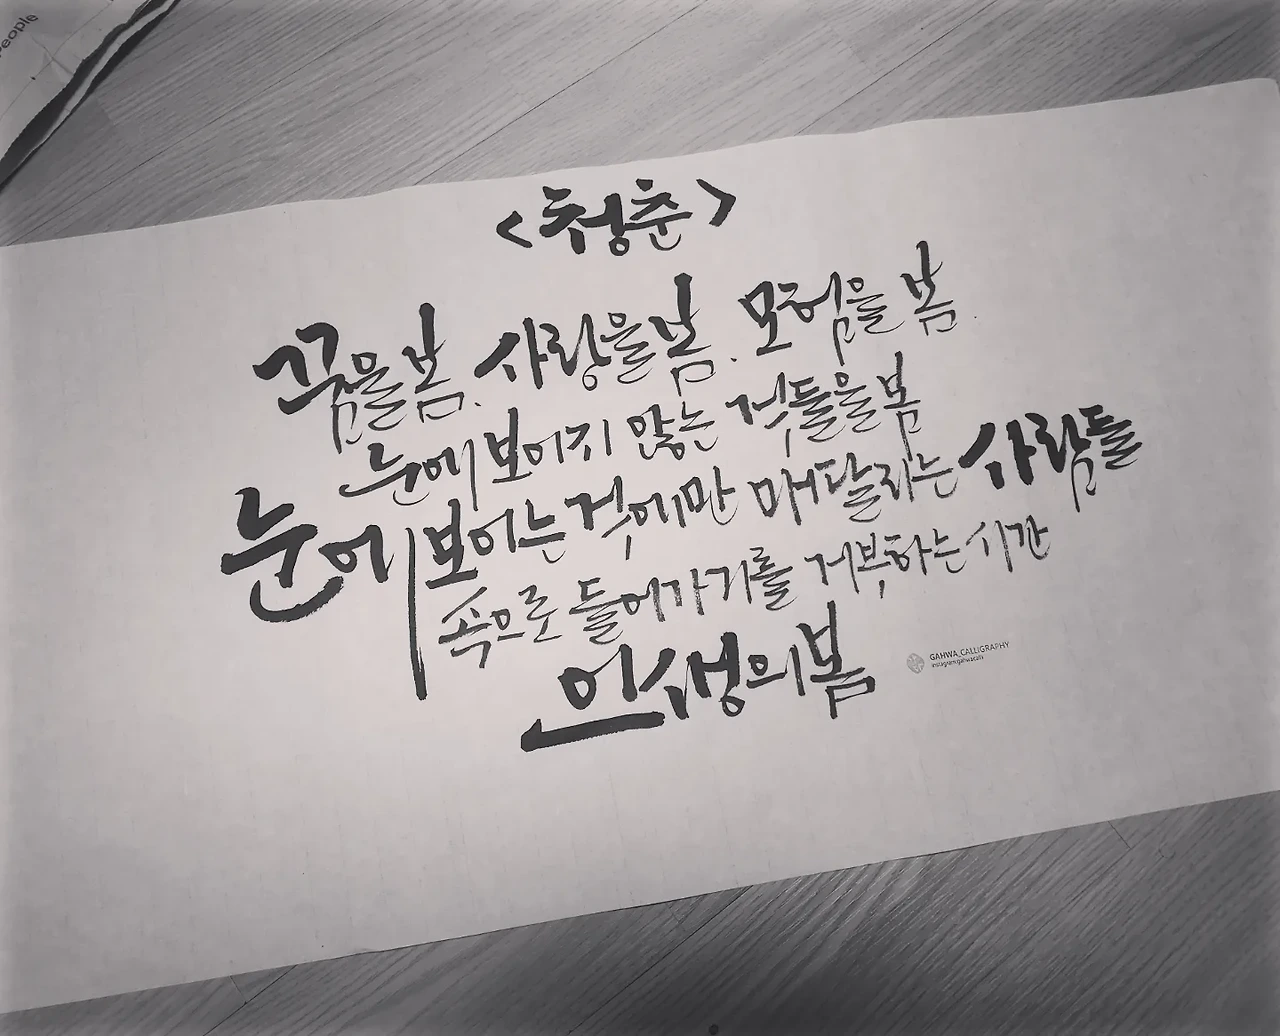 People
<청춘>
꿈을 봄. 사랑을 봄. 모험을 봄.
눈에 보이지 않는 것들을 봄
눈에 보이는 것에만 매달리는 사람들
속으로 들어가기를 거부하는 시간
인생의 봄
GAHWA_CALLIGRAPHY
instagram:gahwacalli